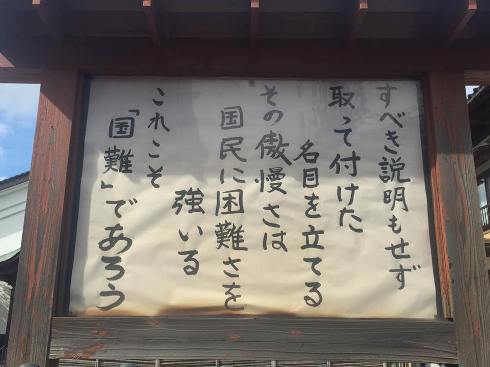 すべき説明もせず
取って付けた
名目を立てる
その傲慢さは
国民に困難さを
強いる
これこそ
「国難」であろう